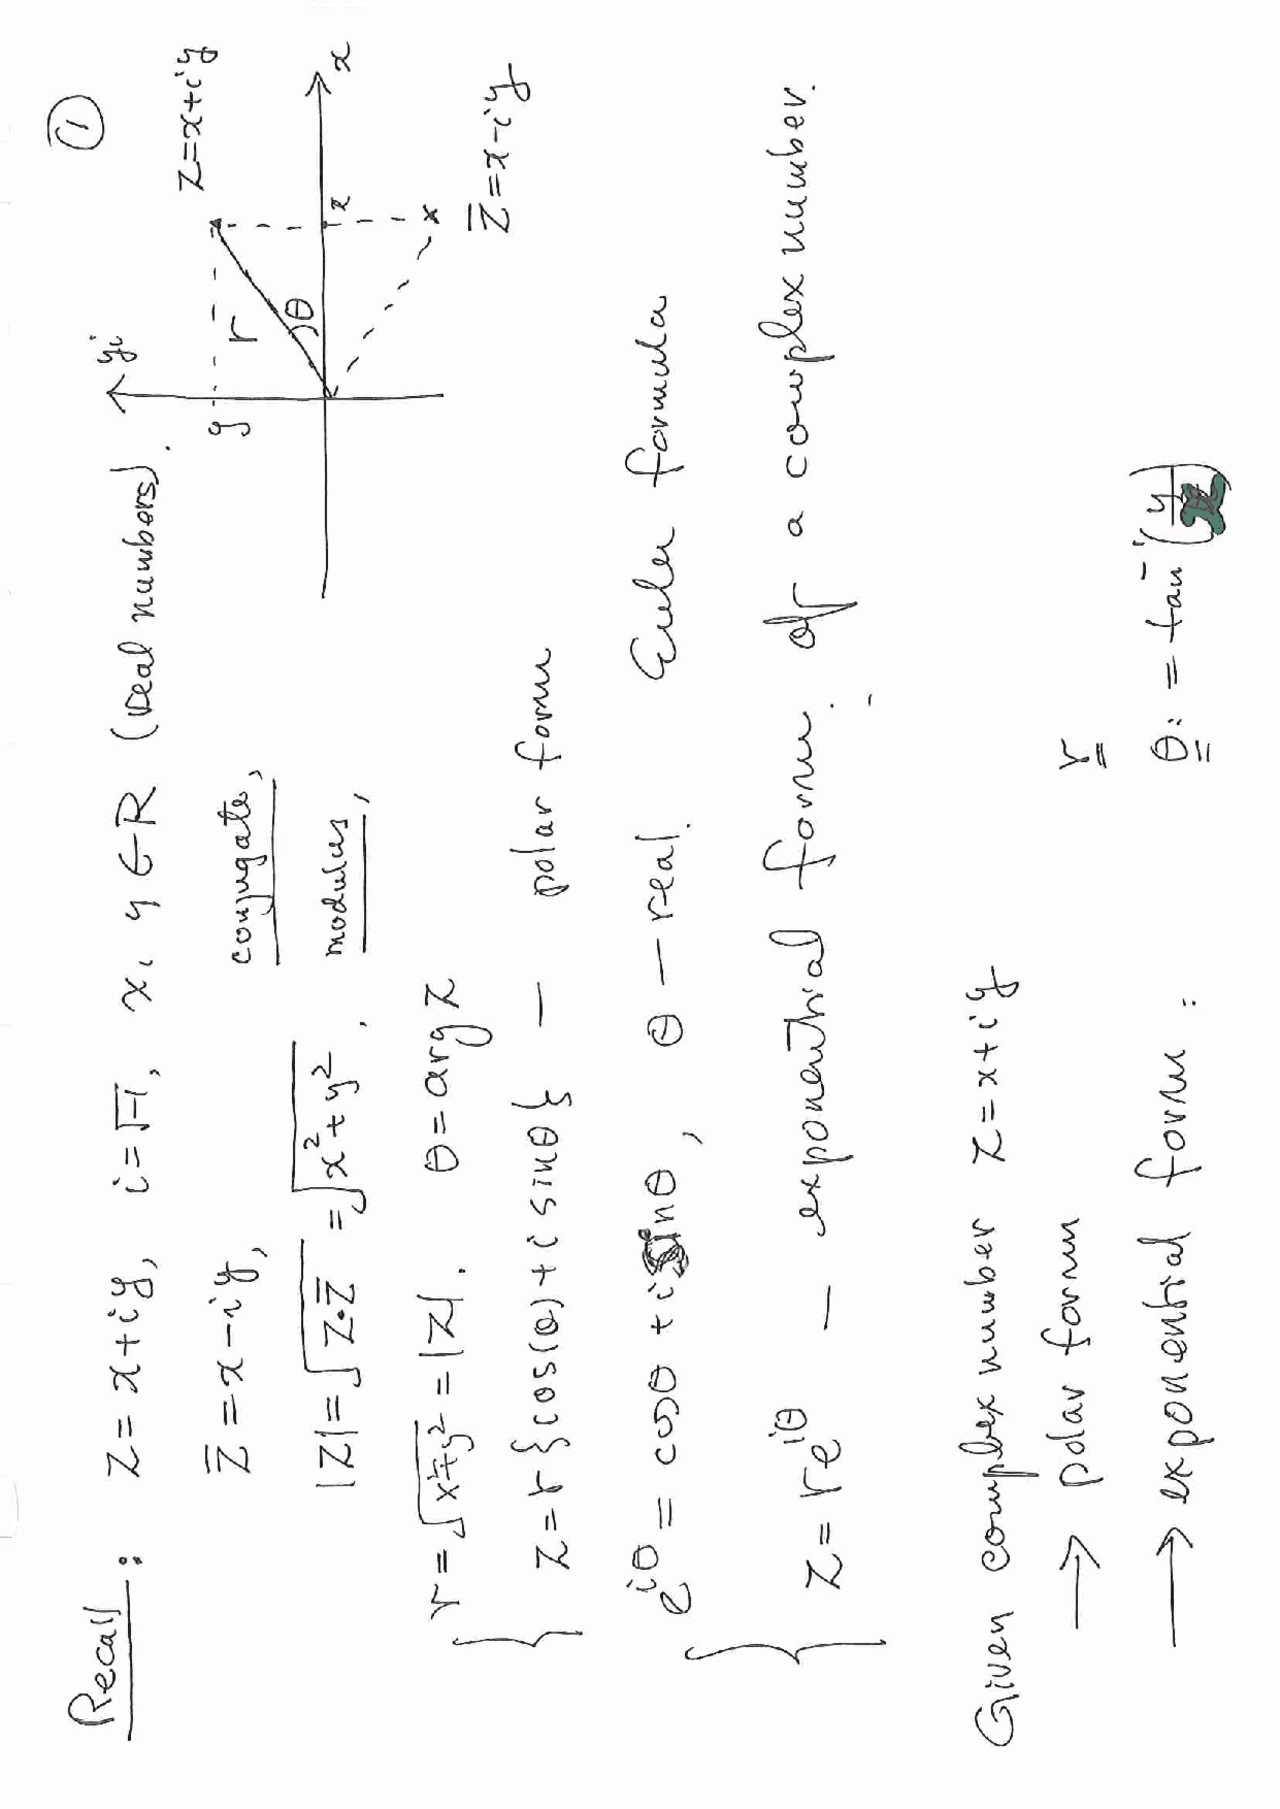 ①
Recall:
z = x + iy, i = √-1, x, y ∈ R (real numbers).
z̅ = x - iy, conjugate,
|z| = √(z·z̅) = √(x² + y²), modulus,
yi
y
r
θ
x
x
z = x + iy
z̅ = x - iy
r = √(x² + y²) = |z|. θ = arg z
z = r{cos(θ) + i sinθ} — polar form
e^{iθ} = cosθ + i sinθ, θ — real. Euler formula
z = re^{iθ} — exponential form of a complex number.
Given complex number z = x + iy
→ polar form r
→ exponential form: θ: = tan⁻¹(y/x)